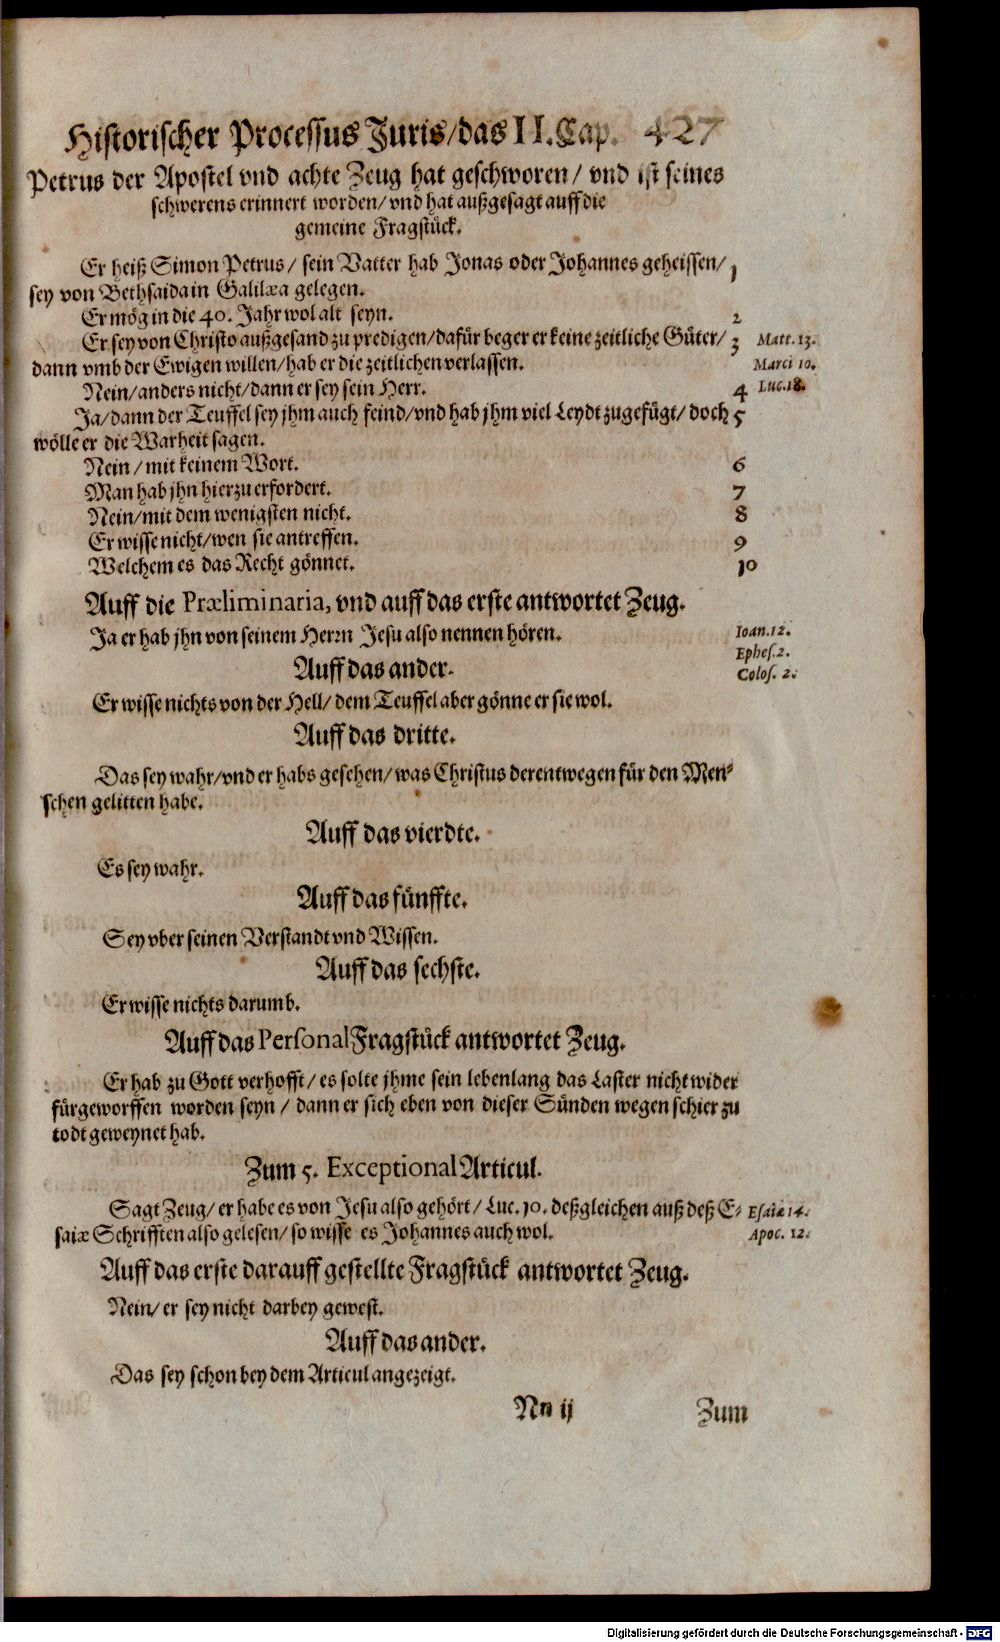 Historischer Processus Juris/das II. Cap. 427
Petrus der Apostel vnd achte Zeug hat geschworen/ vnd ist seines
schwerens erinnert worden/vnd hat außgesagt auff die
gemeine Fragstück.
Er heiß Simon Petrus/ sein Vatter hab Jonas oder Johannes geheissen/ 1
sey von Bethsaida in Galilæa gelegen.
Er mög in die 40. Jahr wol alt seyn. 2
Er sey von Christo außgesand zu predigen/dafür beger er keine zeitliche Güter/ 3 Matt.13.
dann vmb der Ewigen willen/hab er die zeitlichen verlassen. Marci 10.
Nein/anders nicht/dann er sey sein Herr. 4 Luc.18.
Ja/dann der Teuffel sey jhm auch feind/vnd hab jhm viel Leydt zugefügt/ doch 5
wölle er die Warheit sagen.
Nein/mit keinem Wort. 6
Man hab jhn hierzu erfordert. 7
Nein/mit dem wenigsten nicht. 8
Er wisse nicht/wen sie antreffen. 9
Welchem es das Recht gönnet. 10
Auff die Præliminaria, vnd auff das erste antwortet Zeug.
Ja er hab jhn von seinem Herrn Jesu also nennen hören. Ioan.12.
Ephes.2.
Auff das ander. Colos. 2.
Er wisse nichts von der Hell/ dem Teuffel aber gönne er sie wol.
Auff das dritte.
Das sey wahr/vnd er habs gesehen/was Christus derentwegen für den Men-
schen gelitten habe.
Auff das vierdte.
Es sey wahr.
Auff das fünffte.
Sey vber seinen Verstandt vnd Wissen.
Auff das sechste.
Er wisse nichts darumb.
Auff das Personal Fragstück antwortet Zeug.
Er hab zu Gott verhofft/es solte jhme sein lebenlang das Laster nicht wider
fürgeworffen worden seyn/ dann er sich eben von dieser Sünden wegen schier zu
todt geweynet hab.
Zum 5. Exceptional Articul.
Sagt Zeug/er habe es von Jesu also gehört/Luc.10. deßgleichen auß deß E- Esaiæ 14.
saiæ Schrifften also gelesen/so wisse es Johannes auch wol. Apoc. 12.
Auff das erste darauff gestellte Fragstück antwortet Zeug.
Nein/er sey nicht darbey gewest.
Auff das ander.
Das sey schon bey dem Articul angezeigt.
Nn ij Zum
Digitalisierung gefördert durch die Deutsche Forschungsgemeinschaft - DFG